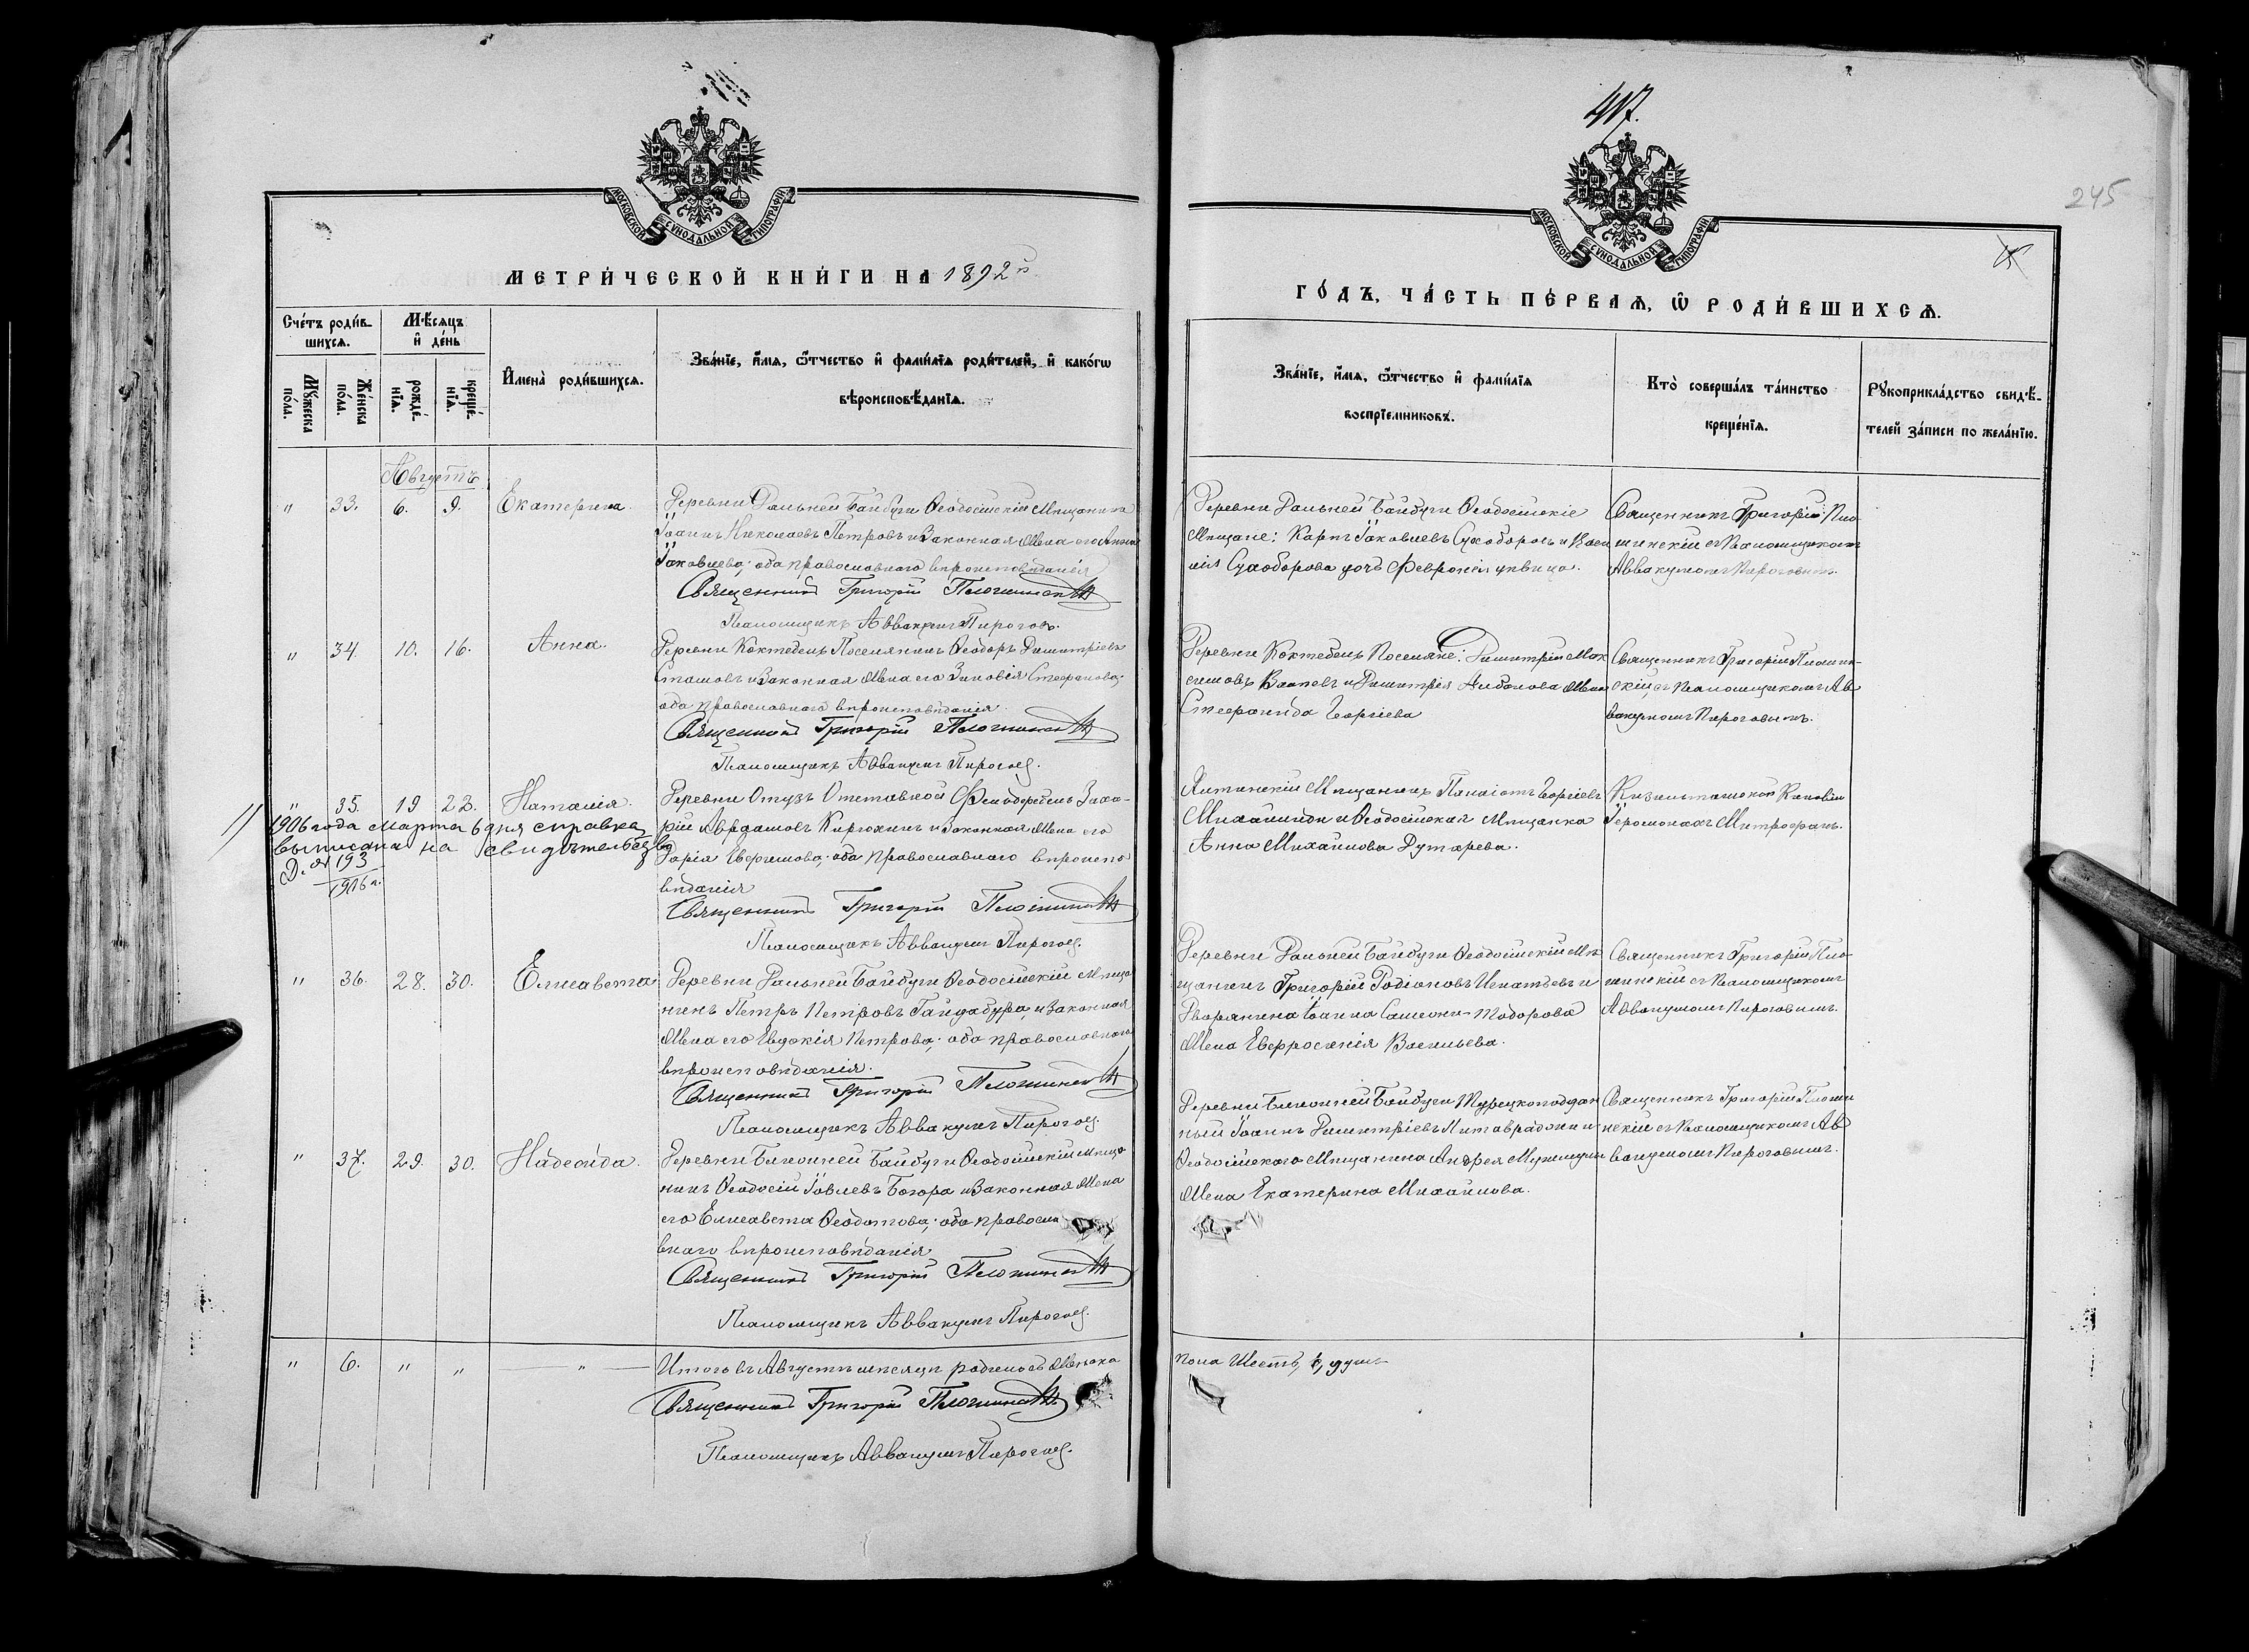 417.
245
МОСКОВСКОЙ СѴНОДАЛЬНОЙ ТИПОГРАФІИ
МОСКОВСКОЙ СѴНОДАЛЬНОЙ ТИПОГРАФІИ
МЕТРИ́ЧЕСКОЙ КНИ́ГИ НА 1892 й
ГО́ДЪ, ЧА́СТЬ ПЕ́РВАѦ, Ѡ҆ РОДИ́ВШИХСѦ.
Сче́тъ роди́в-
шихсѧ.
Мꙋ́жеска по́ла.
Же́нска по́ла.
Мѣ́сѧцъ и҆ де́нь
рожде́-
нїѧ.
креще́-
нїѧ.
И҆мена̀ роди́вшихсѧ.
Зва́нїе, и҆́мѧ, ѻ҆́тчество и҆ фами́лїѧ роди́телей, и҆ како́гѡ
вѣроисповѣ́данїѧ.
Зва́нїе, и҆́мѧ, ѻ҆́тчество и҆ фами́лїѧ
воспрїе́мниковъ.
Кто̀ соверша́лъ та́инство
креще́нїѧ.
Рꙋкоприкла́дство свидѣ́-
телей за́писи по жела́нїю.
Августъ
" 33. 6. 9. Екатерина.
Деревни Дальней Байбуги Ѳеодосійскій Мѣщанинъ
Іоаннъ Николаевъ Петровъ и Законная Жена его Анна
Іаковлева; оба православнаго вѣроисповѣданія
Священникъ Григорій
Псаломщикъ Аввакумъ Пироговъ.
Деревни Дальней Байбуги Ѳеодосійскіе
Мѣщане: Карпъ Іаковлевъ Сухоборовъ и Васи
лія Сухоборова дочь Февронія дѣвица.
Священникъ Григорій Пло-
шинскій съ Псаломщикомъ
Аввакумомъ Пироговымъ.
" 34. 10. 16. Анна.
Деревни Коктебель Поселянинъ Ѳеодоръ Димитріевъ
Сташовъ и Законная Жена его Зиновія Стефанова;
оба православнаго вѣроисповѣданія
Священникъ Григорій
Псаломщикъ Аввакумъ Пироговъ.
Деревни Коктебель Поселяне: Димитрій Мак
симовъ и Димитрія Жена
Стефанида Георгіева
Священникъ Григорій Плошин-
скій съ Псаломщикомъ Ав
вакумомъ Пироговымъ.
" 35. 19 22. Наталія.
1906 года Марта 6 дня справка
выписана на свидѣтельство
Д. № 193
1906 г.
Деревни Отузъ Отставной Фельдфебель Заха-
рій Авраамовъ Кирюхинъ и Законная Жена его
Дарія; оба православнаго вѣроиспо
вѣданія
Священникъ Григорій
Псаломщикъ Аввакумъ Пироговъ.
Ялтинскій Мѣщанинъ Панаіотъ Георгіевъ
Михаилиди и Ѳеодосійская Мѣщанка
Анна Михайлова Дутарева.
Кизильташской Киновіи
Іеромонахъ Митрофанъ.
" 36. 28. 30. Елисавета
Деревни Дальней Байбуги Ѳеодосійскій Мѣща
нинъ Петръ Петровъ Гайдабура, и Законная
Жена его Евдокія Петрова; оба православнаго
вѣроисповѣданія.
Священникъ Григорій
Псаломщикъ Аввакумъ Пироговъ.
Деревни Дальней Байбуги Ѳеодосійскій Мѣ
щанинъ Григорій Родіоновъ Игнатьевъ и
Дворянина Іоанна Тодорова
Жена Евфросинія Васильева.
Священникъ Григорій Пло-
шинскій съ Псаломщикомъ
Аввакумомъ Пироговымъ.
" 37. 29. 30. Надежда.
Деревни Ближней Байбуги Ѳеодосійскій Мѣща
нинъ Ѳеодосій Іовлевъ и Законная Жена
его Елисавета Ѳеодотова; оба правосла
внаго вѣроисповѣданія
Священникъ Григорій
Псаломщикъ Аввакумъ Пироговъ.
Деревни Ближней Байбуги Турецкоподдан
ный Іоаннъ Димитріевъ и
Ѳеодосійскаго Мѣщанина Андрея
Жена Екатерина Михайлова.
Священникъ Григорій Плоши
нскій съ Псаломщикомъ Ав
вакумомъ Пироговымъ.
" 6. " " "
Итого въ Августѣ мѣсяцѣ родилось Женска
пола Шесть, 6, душъ
Священникъ Григорій
Псаломщикъ Аввакумъ Пироговъ.